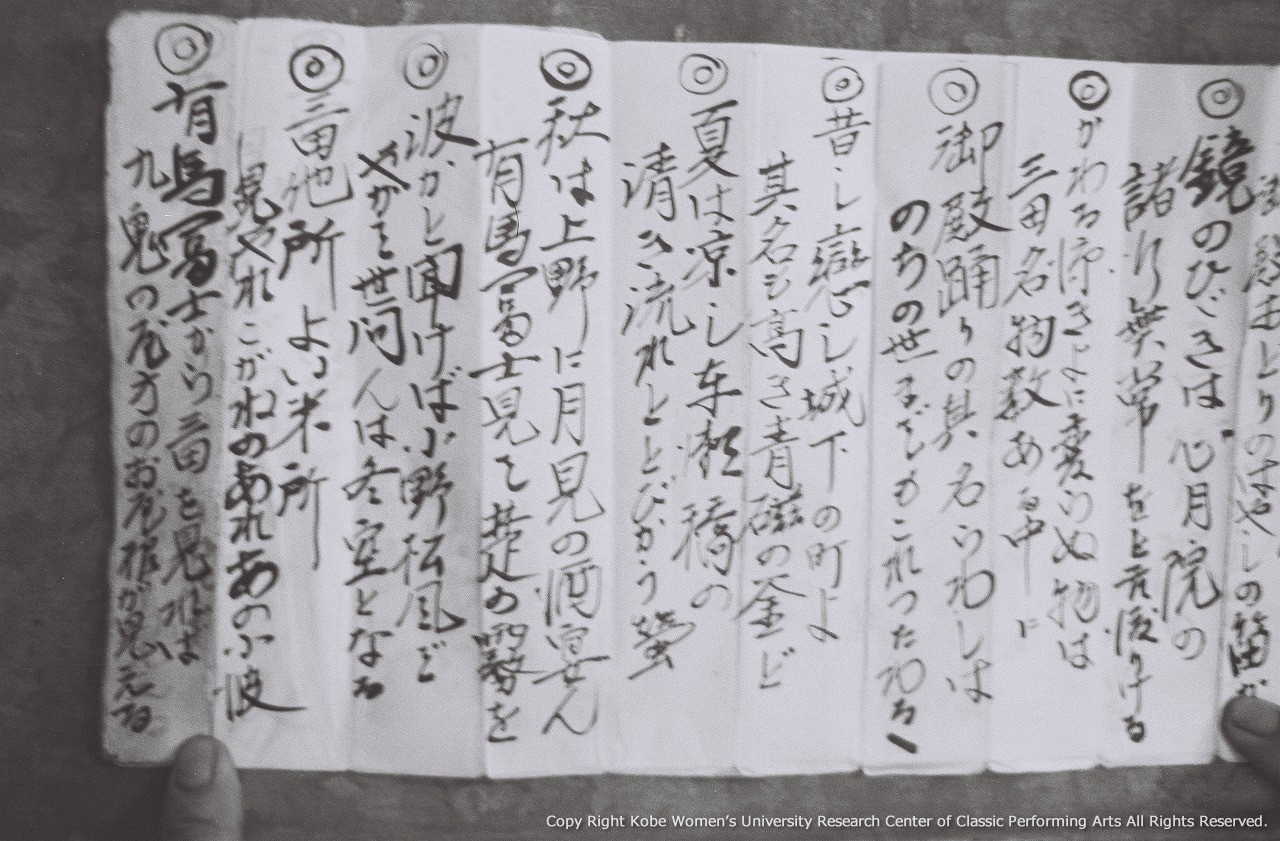 ◎鏡のひゞきは心月院の
諸行無常をと云渡りける
◎かわる
三田名物数ある中に
◎御殿踊りの其名らわしは
のちの世までもこれつたわる
◎昔し戀し城下の町よ
其名も高き青磁の釜ど
◎夏は凉し車瀬橋の
清き流れととびかう螢
◎秋は上野に月見の酒宴ん
有馬富士見て 鹿の聲を
◎波かと聞けば小野松風ど
やがて世間んは冬空となる
◎三田地所よい米所
晃やれこがねのあれあのふ波
◎有馬富士から三田を見れば
九鬼の屋方のお屋根が見える
Copy Right Kobe Women's University Research Center of Classic Performing Arts All Rights Reserved.